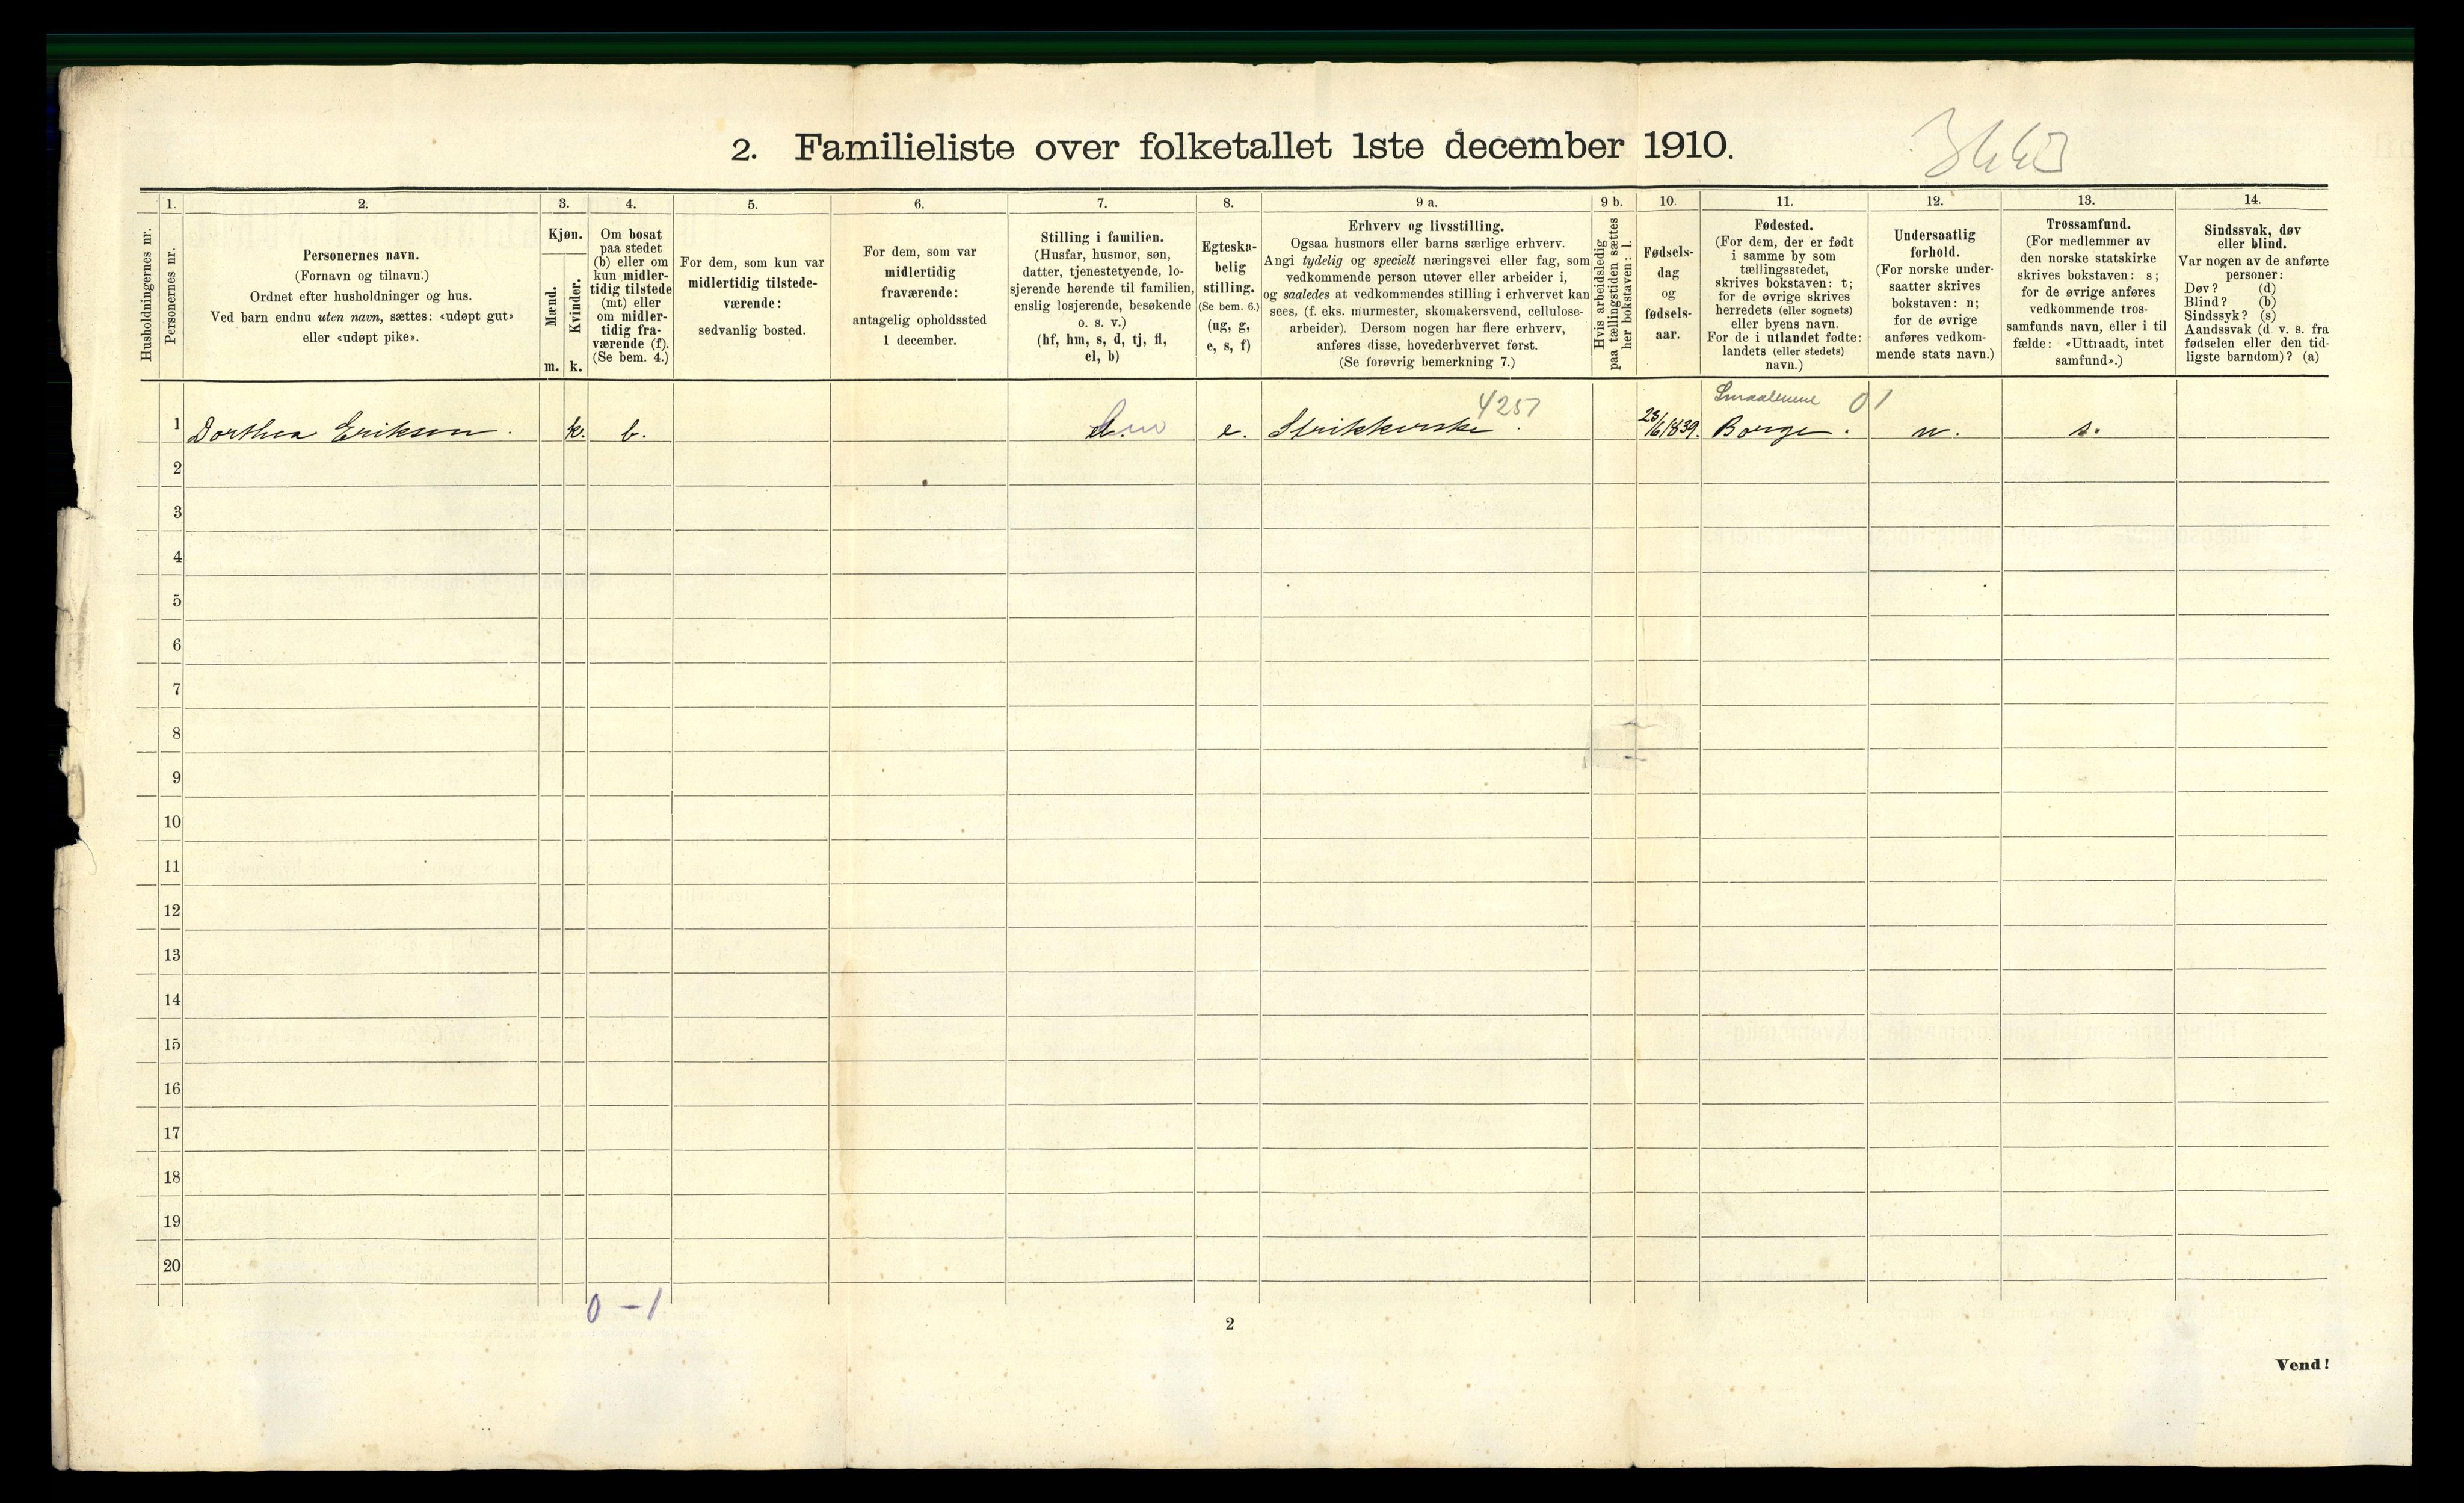 2. Familieliste over folketallet 1ste december 1910.
Husholdningernes nr.
1.
Personernes nr.
2.
Personernes navn.
(Fornavn og tilnavn.)
Ordnet efter husholdninger og hus.
Ved barn endnu uten navn, sættes: «udøpt gut»
eller «udøpt pike».
3.
Kjøn.
Mænd.
Kvinder.
m.
k.
4.
Om bosat
paa stedet
(b) eller om
kun midler-
tidig tilstede
(mt) eller
om midler-
tidig fra-
værende (f).
(Se bem. 4.)
5.
For dem, som kun var
midlertidig tilstede-
værende:
sedvanlig bosted.
6.
For dem, som var
midlertidig
fraværende:
antagelig opholdssted
1 december.
7.
Stilling i familien.
(Husfar, husmor, søn,
datter, tjenestetyende, lo-
sjerende hørende til familien,
enslig losjerende, besøkende
o. s. v.)
(hf, hm, s, d, tj, fl,
el, b)
8.
Egteska-
belig
stilling.
(Se bem. 6.)
(ug, g,
e, s, f)
9 a.
Erhverv og livsstilling.
Ogsaa husmors eller barns særlige erhverv.
Angi tydelig og specielt næringsvei eller fag, som
vedkommende person utøver eller arbeider i,
og saaledes at vedkommendes stilling i erhvervet kan
sees, (f. eks. murmester, skomakersvend, cellulose-
arbeider). Dersom nogen har flere erhverv,
anføres disse, hovederhvervet først.
(Se forøvrig bemerkning 7.)
9 b.
Hvis arbeidsledig
paa tællingstiden sættes
her bokstaven: l.
10.
Fødsels-
dag
og
fødsels-
aar.
11.
Fødested.
(For dem, der er født
i samme by som
tællingsstedet,
skrives bokstaven: t;
for de øvrige skrives
herredets (eller sognets)
eller byens navn.
For de i utlandet fødte:
landets (eller stedets)
navn.)
12.
Undersaatlig
forhold.
(For norske under-
saatter skrives
bokstaven: n;
for de øvrige
anføres vedkom-
mende stats navn.)
13.
Trossamfund.
(For medlemmer av
den norske statskirke
skrives bokstaven: s;
for de øvrige anføres
vedkommende tros-
samfunds navn, eller i til
fælde: «Uttraadt, intet
samfund».)
14.
Sindssvak, døv
eller blind.
Var nogen av de anførte
personer:
Døv? (d)
Blind? (b)
Sindssyk? (s)
Aandssvak (d. v. s. fra
fødselen eller den tid-
ligste barndom)? (a)
Smaalenene 01
4257
1 Dorthea Eriksen. k. b. e. Strikkerske. 23/6 1839. Borge. n. s.
2
3
4
5
6
7
8
9
10
11
12
13
14
15
16
17
18
19
20
0 – 1
2
Vend!